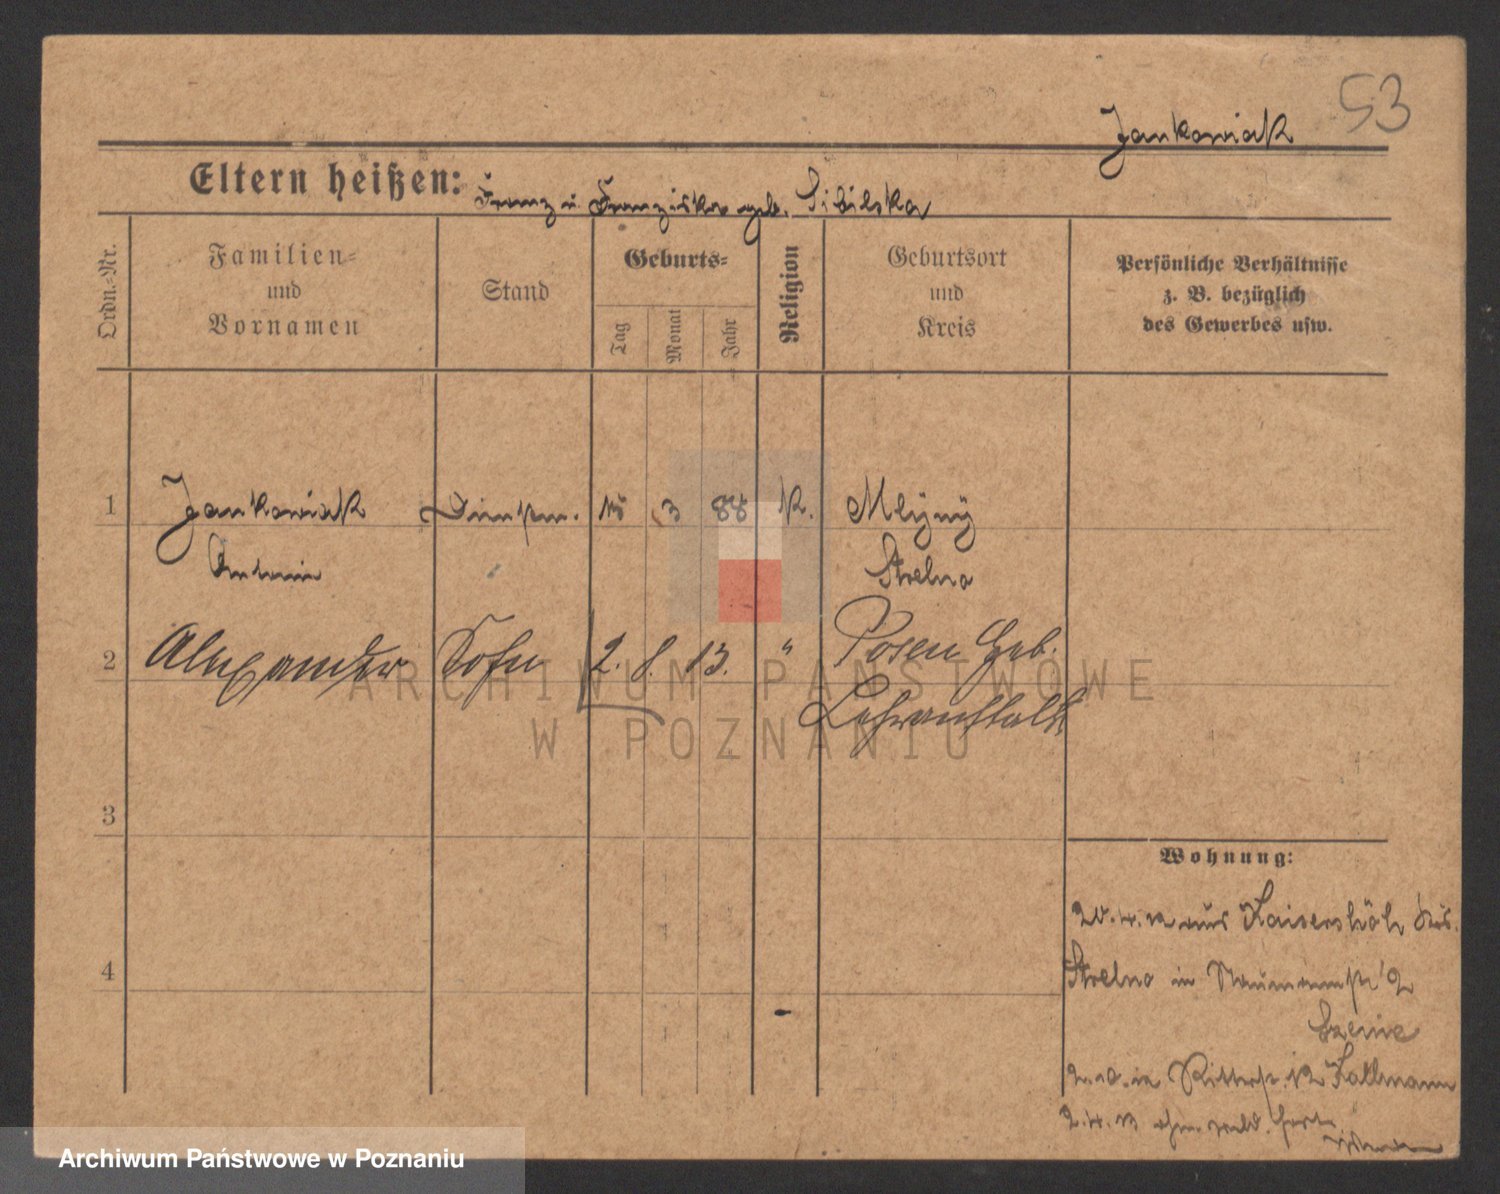 53
Jankowiak
Eltern heißen: Franz u. Franziska geb. Sibilska
Ordn.-Nr.
Familien-
und
Vornamen
Stand
Geburts-
Tag
Monat
Jahr
Religion
Geburtsort
und
Kreis
Persönliche Verhältnisse
z. B. bezüglich
des Gewerbes usw.
1 Jankowiak 3 88 K. Mlÿnÿ
Strelno
2 Alexander Sohn 2. 8. 13. " Posen Geb.
Lehranstalt
3
4
Wohnung:
aus Kaisershöh Krs.
Strelno in Naumannstr 2
2.10.12 Ritterstr. 12 Kallmann
2.4.13
ARCHIWUM PAŃSTWOWE
W POZNANIU
Archiwum Państwowe w Poznaniu